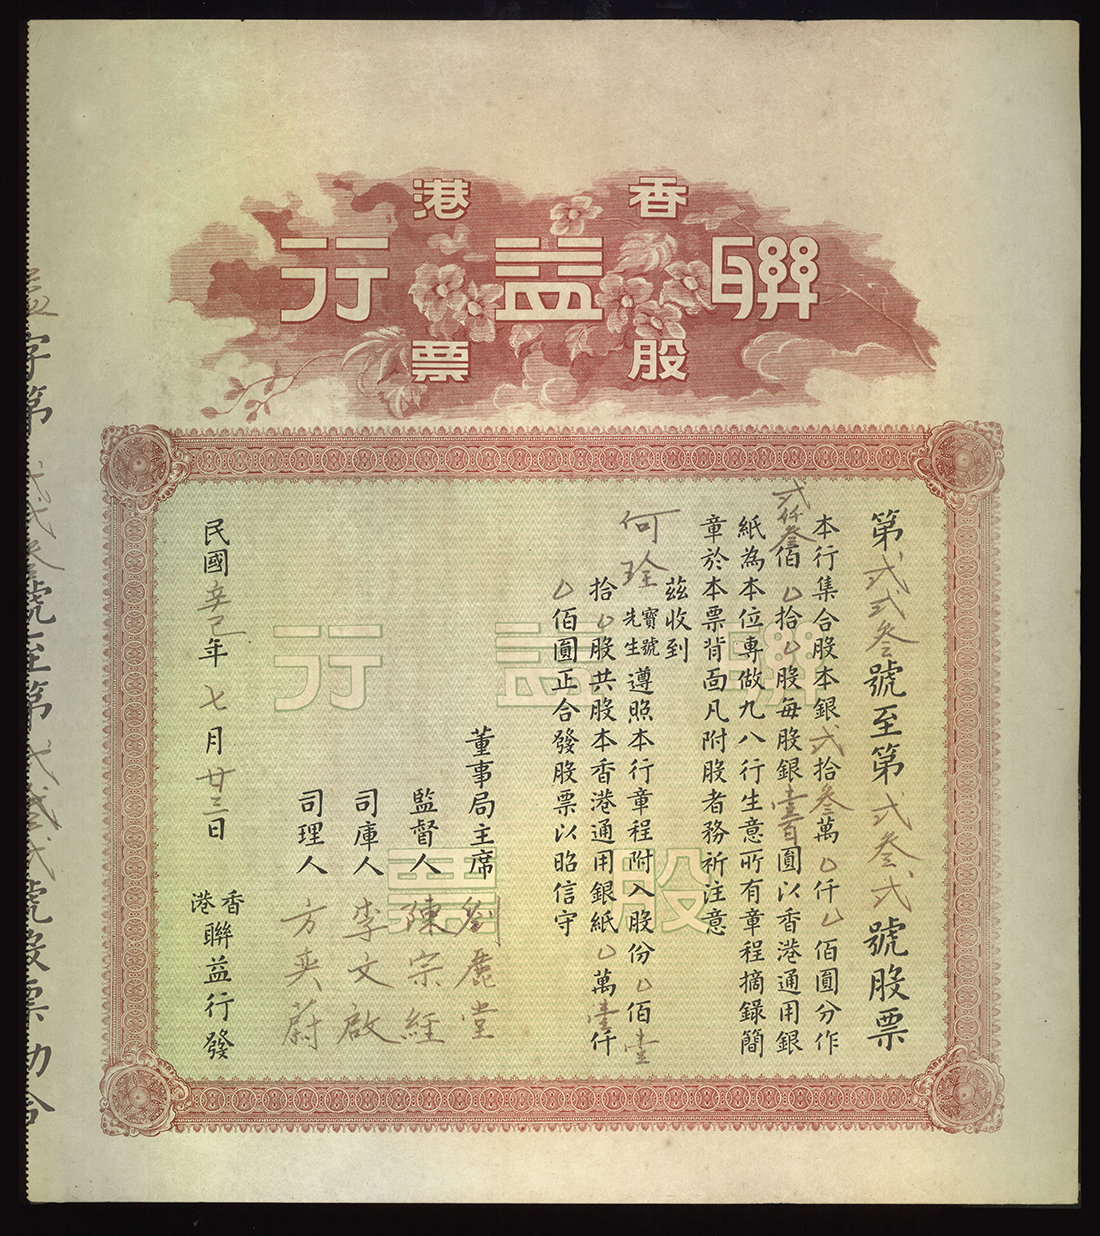 香港
聯益行
股票
第弍弍叁號至第弍叁弍號股票
本行集合股本銀弍拾叁萬〇仟〇佰圓分作
弍仟叁佰〇拾〇股每股銀壹百圓以香港通用銀
紙為本位專做九八行生意所有章程摘錄簡
章於本票背面凡附股者務祈注意
茲收到
何琻寶號先生遵照本行章程附入股份〇佰壹
拾〇股共股本香港通用銀紙〇萬壹仟
〇佰圓正合發股票以昭信守
董事局主席 劉麗堂
監督人 陳宗經
司庫人 李文啟
司理人 方奕蔚
民國辛巳年七月廿三日 香港聯益行發
聯益行
股票
益字第弍弍叁號至第弍叁弍號股票勘合